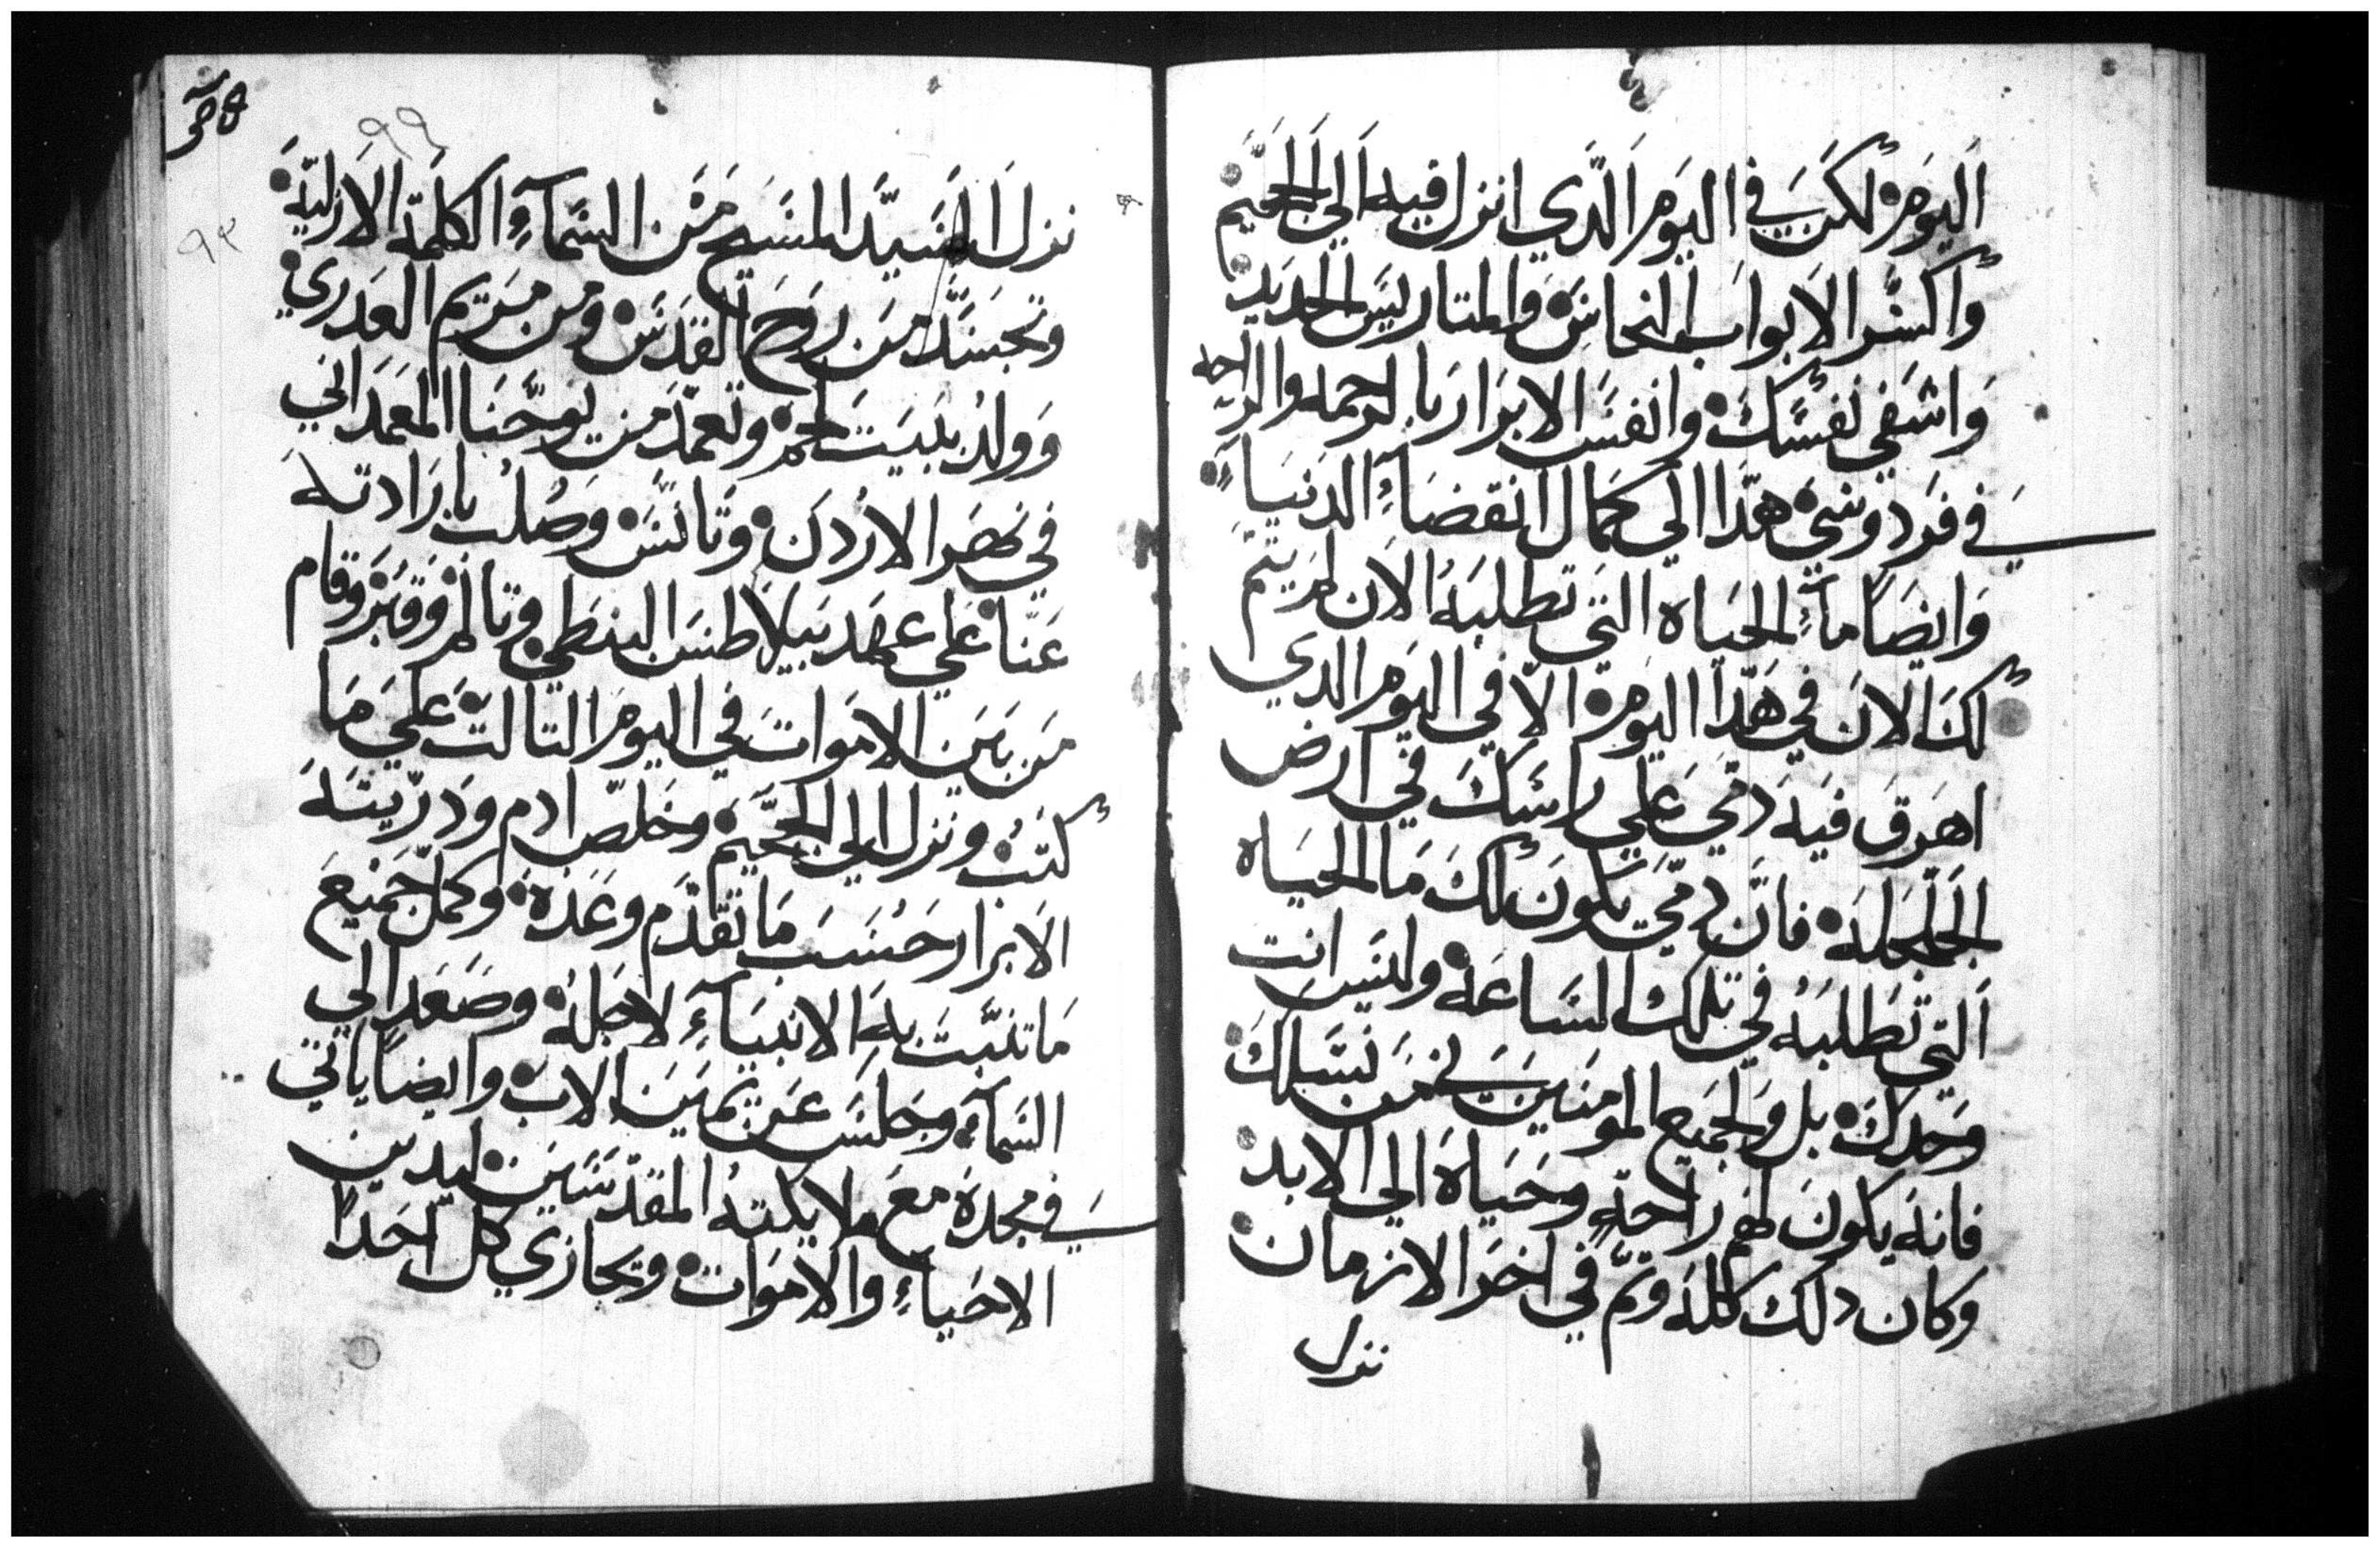 اليوم لكن في اليوم الدي انزل فيه الي الجحيم
واكسر الابواب النحاس والمتاريس الحديد
واشفي نفسك وانفس الابرار بالرحمه والراحه
في فردوسي هدا الي كمال انقضاء الدنيا
وايضا ماء الحياه التي تطلبه الان لم يتم
لك الان في هدا اليوم الا في اليوم الدي
اهرق فيه دمي علي راسك في ارض
الجلجله فان دمي يكون لك ما الحياه
التي تطلبه في تلك الساعه وليس انت
وحدك بل ولجميع المومنين في من نسلك
فانه يكون لهم راحه وحياه الي الابد
وكان دلك كله وتم في اخر الازمان
نزل
٩٩
٩٢
نزل السيد المسيح من السماء الكلمه الازليه
وتجسد من روح القدس ومن مريم العدري
وولد ببيت لحم وتعمد من يوحنا المعمداني
في نهر الاردن وتانس وصلب بارادته
عنا علي عهد بيلاطس البنطي وتالم وقبر وقام
من بين الاموات في اليوم التالت علي ما
كتب ونزل الي الجحيم وخلص ادم ودريته
الابرار حسب ما تقدم وعده وكمل جميع
ما تنبت به الانبياء لاجله وصعد الي
السماء وجلس عن يمين الاب وايضا ياتي
في مجده مع ملايكته المقدسين ليدين
الاحياء والاموات ويجازي كل احدا